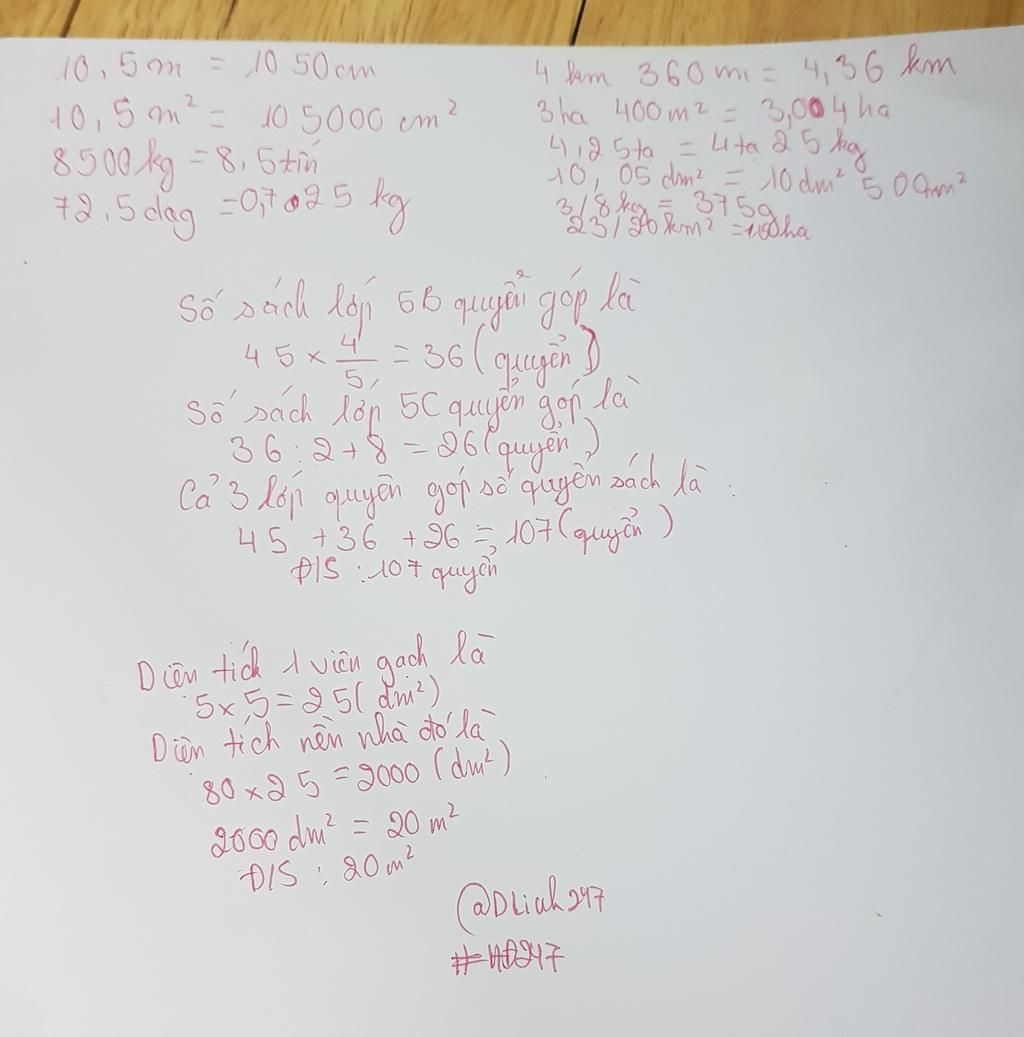 10,5m = 1050cm
10,5m² = 105000cm²
8500kg = 8,5tấn
72.5dag = 0,725 kg
4 km 360m = 4,36 km
3ha 400m² = 3,004ha
4,25ta = 4ta 25kg
10,05dm² = 10dm² 500mm²
3/8kg = 375g
23/20km² = ha
Số sách lớp 5B quyển góp là
45 × 4/5 = 36 (quyển)
Số sách lớp 5C quyển góp là
36 : 2 + 8 = 26 (quyển)
Cả 3 lớp quyển góp số quyển sách là :
45 + 36 + 26 = 107 (quyển)
Đ/S : 107 quyển
Diện tích 1 viên gach là
5 × 5 = 25 (dm²)
Diện tích nền nhà đó là
80 × 25 = 2000 (dm²)
2000 dm² = 20 m²
Đ/S : 20 m²
@DLinh247